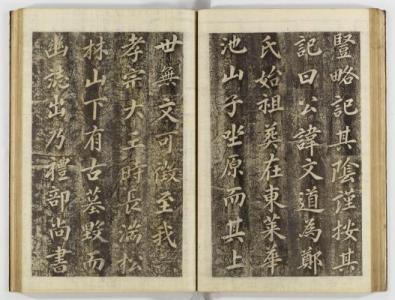 豎略記其陰謹按其
記曰公諱文道為鄭
氏始祖葬在東萊華
池山子坐原而其上
世無文可徵至我
孝宗大王時長湍松
林山下有古墓毀而
幽誌出乃禮部尚書